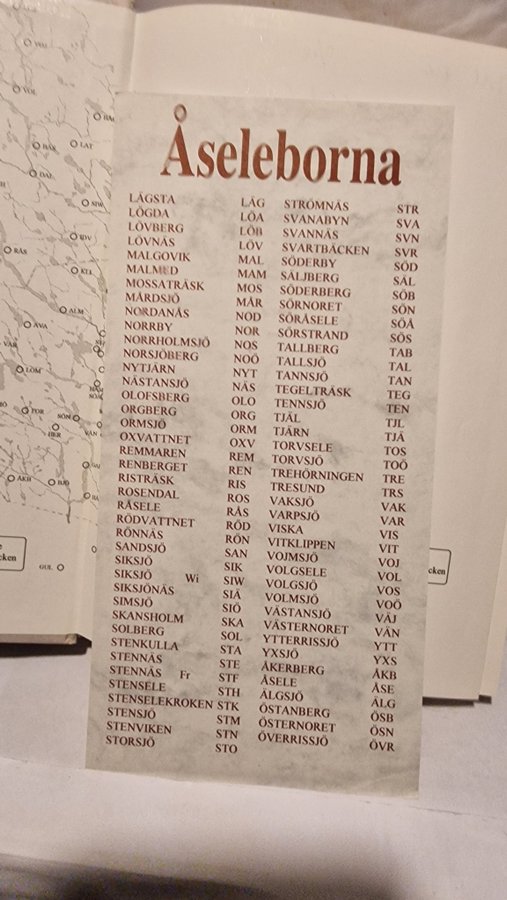 Åseleborna
LÄGSTA LÄG
LÖGDA LÖA
LÖVBERG LÖB
LÖVNÄS LÖV
MALGOVIK MAL
MALMED MAM
MOSSATRÄSK MOS
MÅRDSJÖ MÅR
NORDANÅS NOD
NORRBY NOR
NORRHOLMSJÖ NOS
NORSJÖBERG NOÖ
NYTJÄRN NYT
NÄSTANSJÖ NÄS
OLOFSBERG OLO
ORGBERG ORG
ORMSJÖ ORM
OXVATTNET OXV
REMMAREN REM
RENBERGET REN
RISTRÄSK RIS
ROSENDAL ROS
RÅSELE RÅS
RÖDVATTNET RÖD
RÖNNÄS RÖN
SANDSJÖ SAN
SIKSJÖ SIK
SIKSJÖ Wi SIW
SIKSJÖNÄS SIÄ
SIMSJÖ SIÖ
SKANSHOLM SKA
SOLBERG SOL
STENKULLA STA
STENNÄS STE
STENNÄS Fr STF
STENSELE STH
STENSELEKROKEN STK
STENSJÖ STM
STENVIKEN STN
STORSJÖ STO
STRÖMNÄS STR
SVANABYN SVA
SVANNÄS SVN
SVARTBÄCKEN SVR
SÖDERBY SÖD
SÄLJBERG SÄL
SÖDERBERG SÖB
SÖRNORET SÖN
SÖRÅSELE SÖÅ
SÖRSTRAND SÖS
TALLBERG TAB
TALLSJÖ TAL
TANNSJÖ TAN
TEGELTRÄSK TEG
TENNSJÖ TEN
TJÅL TJL
TJÄRN TJÄ
TORVSELE TOS
TORVSJÖ TOÖ
TREHÖRNINGEN TRE
TRESUND TRS
VAKSJÖ VAK
VARPSJÖ VAR
VISKA VIS
VITKLIPPEN VIT
VOJMSJÖ VOJ
VOLGSELE VOL
VOLGSJÖ VOS
VOLMSJÖ VOÖ
VÄSTANSJÖ VÄJ
VÄSTERNORET VÄN
YTTERRISSJÖ YTT
YXSJÖ YXS
ÅKERBERG ÅKB
ÅSELE ÅSE
ÄLGSJÖ ÄLG
ÖSTANBERG ÖSB
ÖSTERNORET ÖSN
ÖVERRISSJÖ ÖVR
VOL
LAT
RÅS
ALM
AVA
LOM
SÖN
HER
ÅKB
GUL
cken
cken